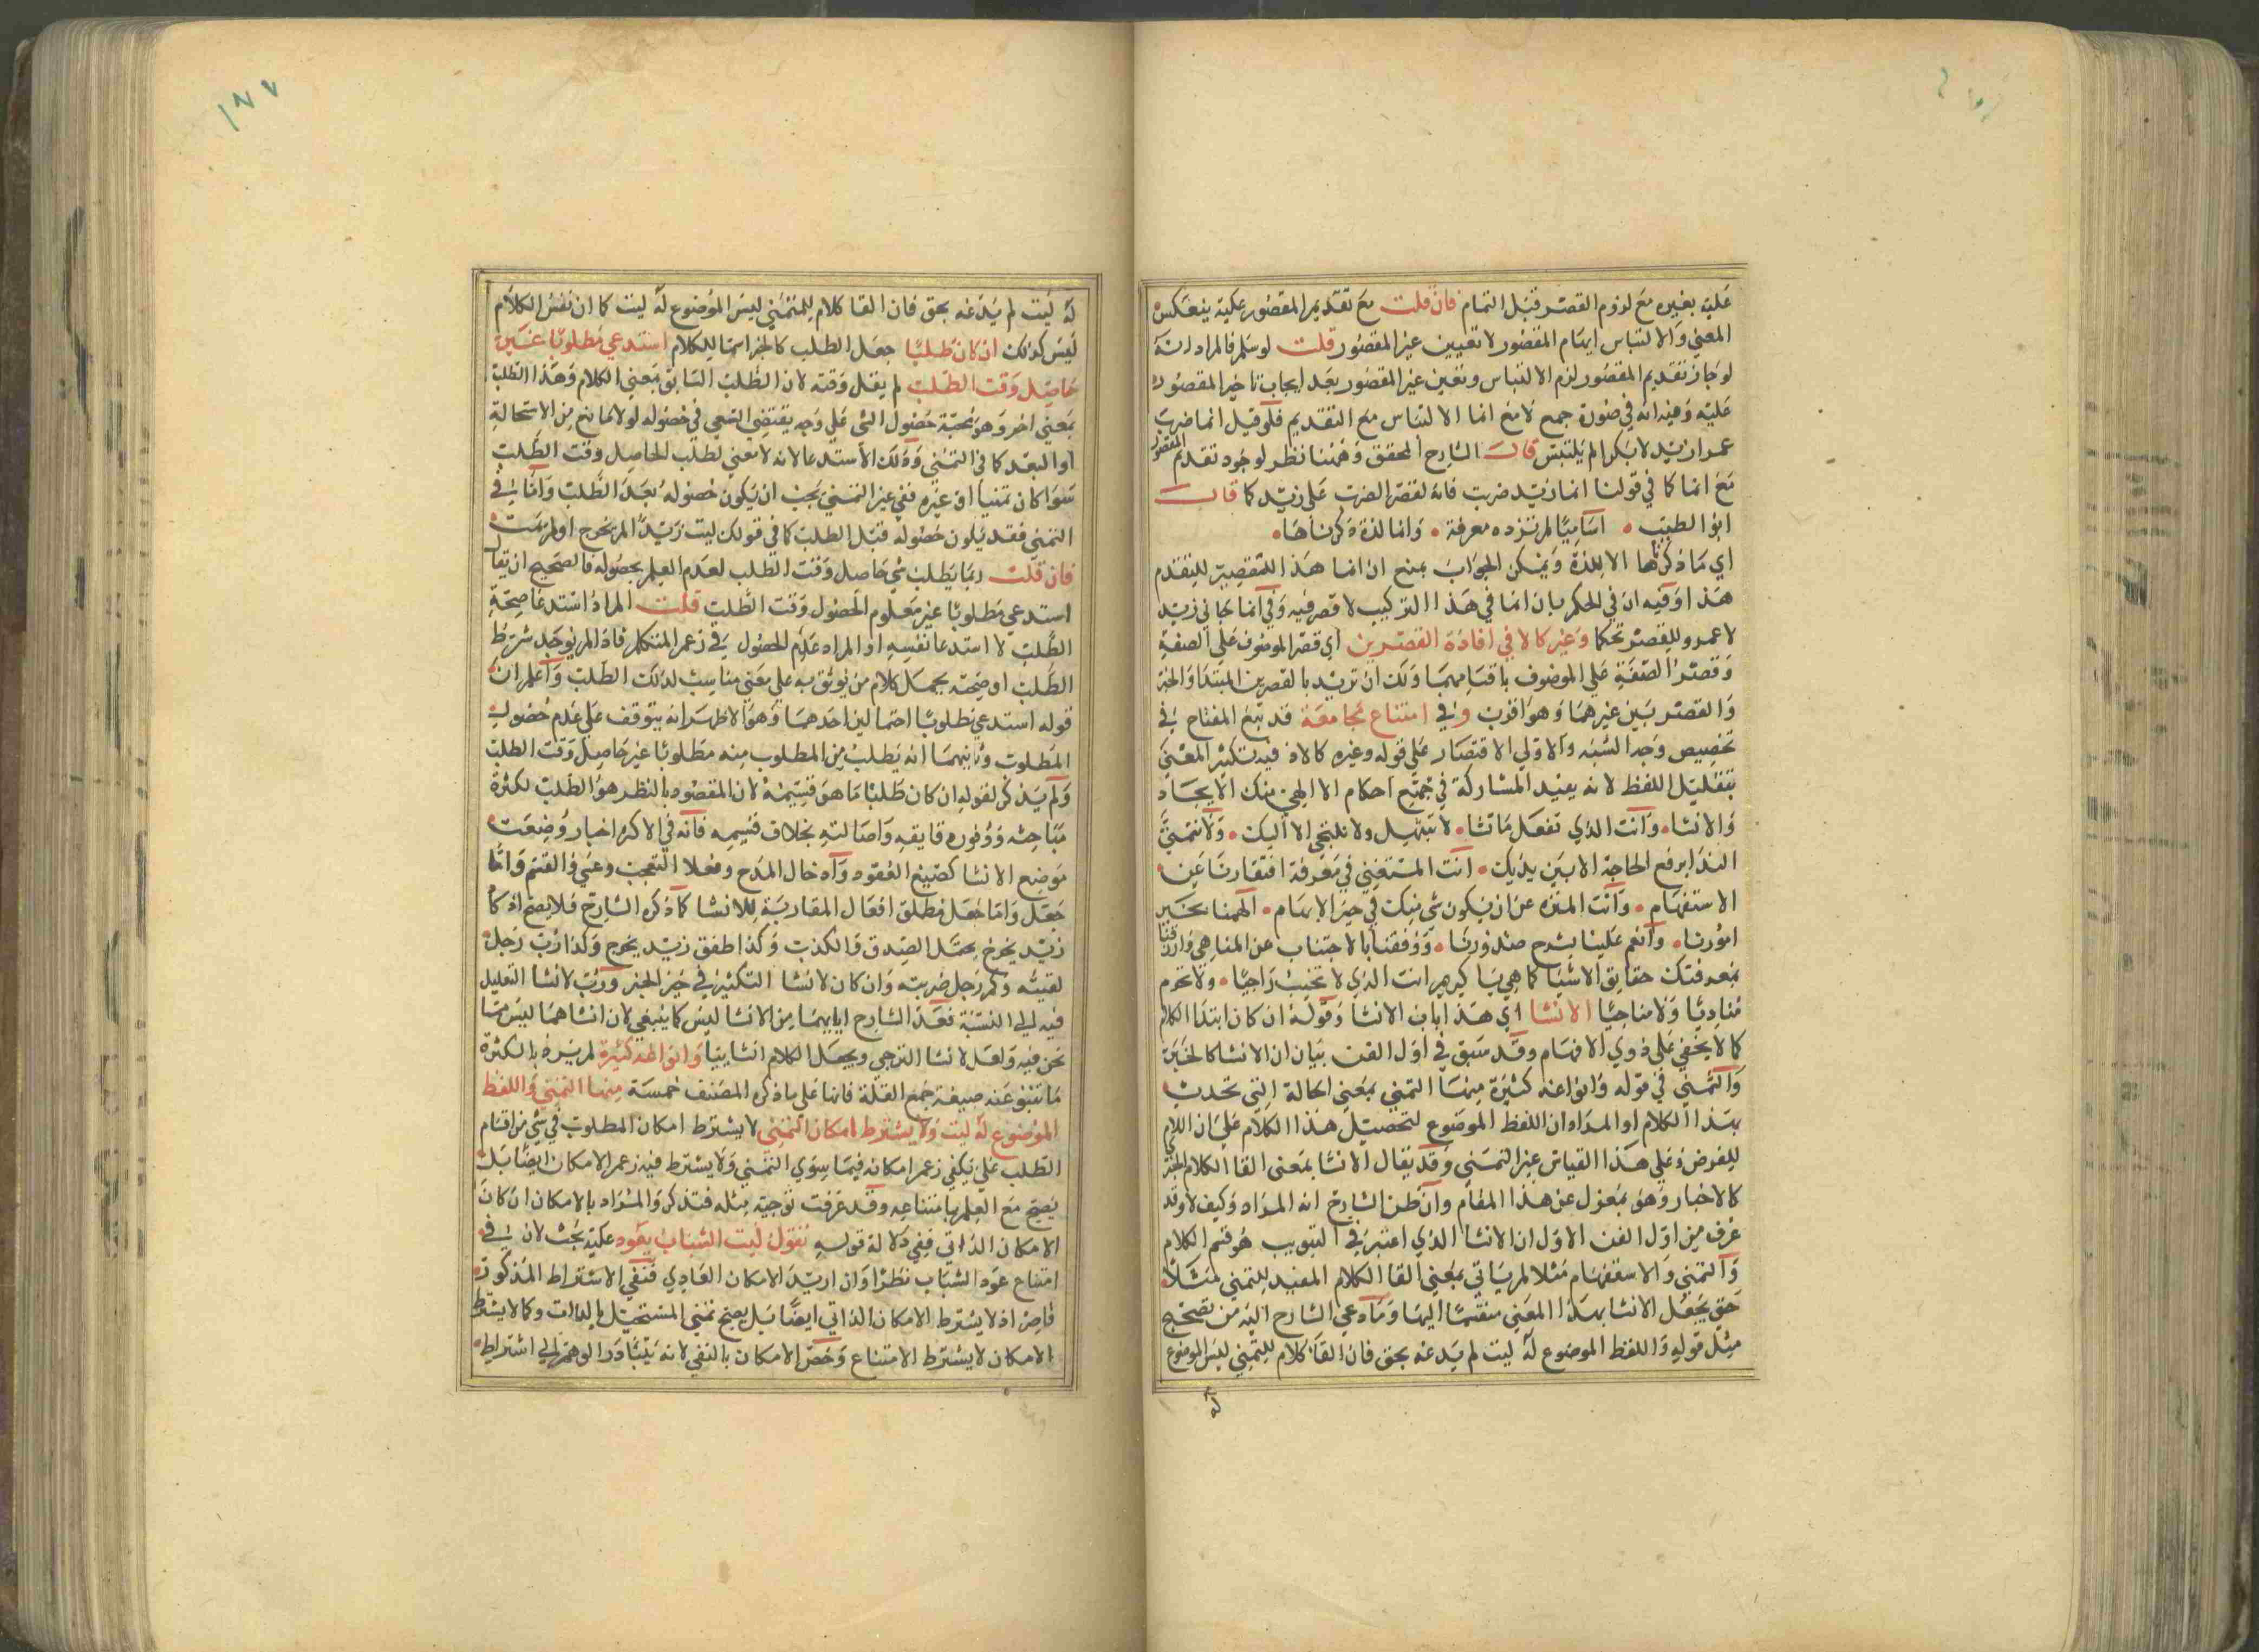 عليه بغيره مع لزوم القصر قبل التمام فان قلت مع تقديم المقصور عليه ينعكس
المعني والالتباس ايهام المقصور لا تعيين غير المقصور قلت لو سلم فالمراد انه
لو جاز تقديم المقصور لزم الالتباس وتعين غير المقصور بعد ايجاب تاخير المقصور
عليه وفيه انه في صورة جمع لا مع انما لا التباس مع التقديم فلو قيل انما ضرب
عمرا زيد لا بكرا لم يلتبس قال الشارح المحقق وههنا نظر لوجود تقديم المقصور
مع انما كما في قولنا انما زيد ضربت فانه لقصر الضرب على زيد كما قال
ابو الطيب • اساميا لم تزده معرفة • وانما لذة ذكرناها •
اي ما ذكرناها الا للذة ويمكن الجواب بمنع ان انما هذا للقصر بل للتقدم
هذا وفيه ان في الحكم بان انما في هذا التركيب لا قصر فيه وفي انما جاني زيد
لا عمرو للقصر تحكما وغير كالا في افادة القصرين اي قصر الموصوف على الصفة
وقصر الصفة على الموصوف باقسامهما ولك ان تريد بالقصرين المبتدا والخبر
والقصر بين غيرهما وهو اقرب وفي امتناع مجامعة قد تبع المفتاح في
تخصيص وجه الشبه والاولي الاقتصار على قوله وغيره كالا فيه تكثير المعني
بتقليل اللفظ لانه يفيد المشاركة في جميع احكام الا الهي منك الايجاد
والانشا • وانت الذي تفعل ما تشا • لا نبتهل ولا نلتجي الا اليك • ولا نتمني
الندا برفع الحاجة الا بين يديك • انت المستغني في معرفة افتقارنا عن
الاستفهام • وانت المنزه عن ان يكون شي منك في حيز الابهام • الهمنا بخير
امورنا • وانعم علينا بشرح صدورنا • ووفقنا بالاجتناب عن المناهي وارزقنا
بمعرفتك حقايق الاشيا كما هي يا كريم انت الذي لا تخيب راجيا • ولا تحرم
مناديا ولا مناجيا الانشا اي هذا باب الانشا وقوله ان كان ابتدا الكلام
كما لا يخفي على ذوي الافهام وقد سبق في اول الفن بيان ان الانشا كالخبر
والتمني في قوله وانواعه كثيرة منها التمني بمعني الحالة التي تحدث
بهذا الكلام او المراد ان اللفظ الموضوع لتحصيل هذا الكلام على ان اللام
للغرض وعلى هذا القياس غير التمني وقد يقال الانشا بمعنى القا الكلام الخ
كالاخبار وهو بمعزل عن هذا المقام وان ظن الشارح انه المراد وكيف لا وقد
عرف من اول الفن الاول ان الانشا الذي اعتبر في التبويب هو قسم الكلام
والتمني والاستفهام مثلا لم ياتي بمعني القا الكلام المفيد للتمني مثلا
حتي يجعل الانشا بهذا المعني منقسما اليها وما دعي الشارح اليه من تصحيح
مثل قوله واللفظ الموضوع له ليت لم يدعه بحق فان القا كلام للتمني ليس الموضوع
له
١٨٧
له ليت لم يدعه بحق فان القا كلام للتمني ليس الموضوع له ليت كما ان نفس الكلام
ليس كذلك ان كان طلبا جعل الطلب كالخبر اسما للكلام استدعي مطلوبا غير
حاصل وقت الطلب لم يقل وقته لان الطلب السابق بمعني الكلام وهذا الطلب
بمعني اخر وهو محبة حصول الشي على وجه يقتضي السعي في حصوله لولا مانع من الاستحالة
او البعد كما في التمني وذلك الاستدعا لانه لا معني لطلب الحاصل وقت الطلب
سوا كان تمنيا او غيره ففي غير التمني يجب ان يكون حصوله بعد الطلب واما في
التمني فقد يكون حصوله قبل الطلب كما في قولك ليت زيدا لم يخرج او لم يمت
فان قلت ربما يطلب شي حاصل وقت الطلب لعدم العلم بحصوله فالصحيح ان يقال
استدعي مطلوبا غير معلوم الحصول وقت الطلب قلت المراد استدعا صحة
الطلب لا استدعا نفسه او المراد عدم الحصول في زعم المتكلم فاذا لم يوجد شرط
الطلب او صحته يحمل كلام من يوثق به على معني مناسب لذلك الطلب واعلم ان
قوله استدعي مطلوبا احتمالين احدهما وهو الاظهر انه يتوقف على عدم حصول
المطلوب وثانيهما انه يطلب من المطلوب منه مطلوبا غير حاصل وقت الطلب
ولم يذكر لقوله ان كان طلبا ما هو قسيمه لان المقصود بالنظر هو الطلب لكثرة
مباحثه ووفور دقايقه واصالته بخلاف قسيمه فانه في الاكثر اخبار وضعت
موضع الانشا كصيغ العقود وادخال المدح وفعلا التعجب وعسي والقسم واما
جعل واما جعل مطلق افعال المقاربة للانشا كما ذكره الشارح فلا يصح اذ كاد
زيد يخرج يحتمل الصدق والكذب وكذا طفق زيد يخرج وكذا رب رجل
لقيته وكم رجل ضربته وان كان لانشا التكثير في حيز الخبر ورب لانشا التقليل
فيه الي النسبة فعد الشارح اياهما من الانشا ليس كما ينبغي لان انشاهما ليس مما
نحن فيه ولعل لانشا الترجي ويجعل الكلام انشاييا وانواعه كثيرة لم يرد بالكثرة
ما تنبو عنه صيغة جمع القلة فانها على ما ذكره المصنف خمسة منها التمني واللفظ
الموضوع له ليت ولا يشترط امكان التمني لا يشترط امكان المطلوب في شي من اقسام
الطلب على يكفي زعم امكانه فيما سوي التمني ولا يشترط فيه زعم الامكان ايضا بل
يصح مع العلم بامتناعه وقد عرفت توجيه مثله فتذكر والمراد بالامكان ان كان
الامكان الذاتي ففي دلالة قوله نقول ليت الشباب يعود عليه بحث لان في
امتناع عود الشباب نظرا وان اريد الامكان العادي فنفي الاشتراط المذكور
قاصر اذ لا يشترط الامكان الذاتي ايضا بل يصح تمني المستحيل بالذات وكما لا يشترط
الامكان لا يشترط الامتناع وخص الامكان بالنفي لانه يتبادر الوهم الي اشتراطه